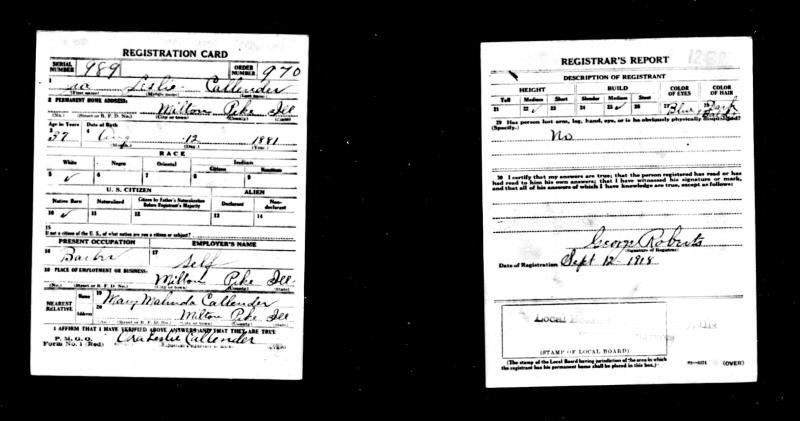 REGISTRATION CARD
SERIAL NUMBER 989 ORDER NUMBER 970
1 Leslie Callender
(First name) (Middle name) (Last name)
2 PERMANENT HOME ADDRESS:
Milton Pike Ill
(No.) (Street or R. F. D. No.) (City or town) (County) (State)
Age in Years Date of Birth
3 37 4 Aug 12 1881
(Month) (Day) (Year)
RACE
White Negro Oriental Indian
Citizen Noncitizen
5 ✓ 6 7 8 9
U. S. CITIZEN ALIEN
Native Born Naturalized Citizen by Father's Naturalization Before Registrant's Majority Declarant Non-declarant
10 ✓ 11 12 13 14
15
If not a citizen of the U. S., of what nation are you a citizen or subject?
PRESENT OCCUPATION EMPLOYER'S NAME
16 Barber 17 Self
18 PLACE OF EMPLOYMENT OR BUSINESS:
Milton Pike Ill
(No.) (Street or R. F. D. No.) (City or town) (County) (State)
NEAREST RELATIVE Name 19 Mary Malinda Callender
Address 20 Milton Pike Ill
(No.) (Street or R. F. D. No.) (City or town) (County) (State)
I AFFIRM THAT I HAVE VERIFIED ABOVE ANSWERS AND THAT THEY ARE TRUE
P. M. G. O.
Form No. 1 (Red) Ora Leslie Callender
(OVER)
REGISTRAR'S REPORT
DESCRIPTION OF REGISTRANT
HEIGHT BUILD COLOR OF EYES COLOR OF HAIR
Tall Medium Short Slender Medium Stout
21 22 ✓ 23 24 25 ✓ 26 27 Blue 28 Dark
29 Has person lost arm, leg, hand, eye, or is he obviously physically disqualified?
(Specify.) No
30 I certify that my answers are true; that the person registered has read or has
had read to him his own answers; that I have witnessed his signature or mark,
and that all of his answers of which I have knowledge are true, except as follows:
George Roberts
(Signature of Registrar)
Date of Registration Sept 12 - 1918
Local Board
(STAMP OF LOCAL BOARD)
(The stamp of the Local Board having jurisdiction of the area in
which the registrant has his permanent home shall be placed in this box.)
(OVER)